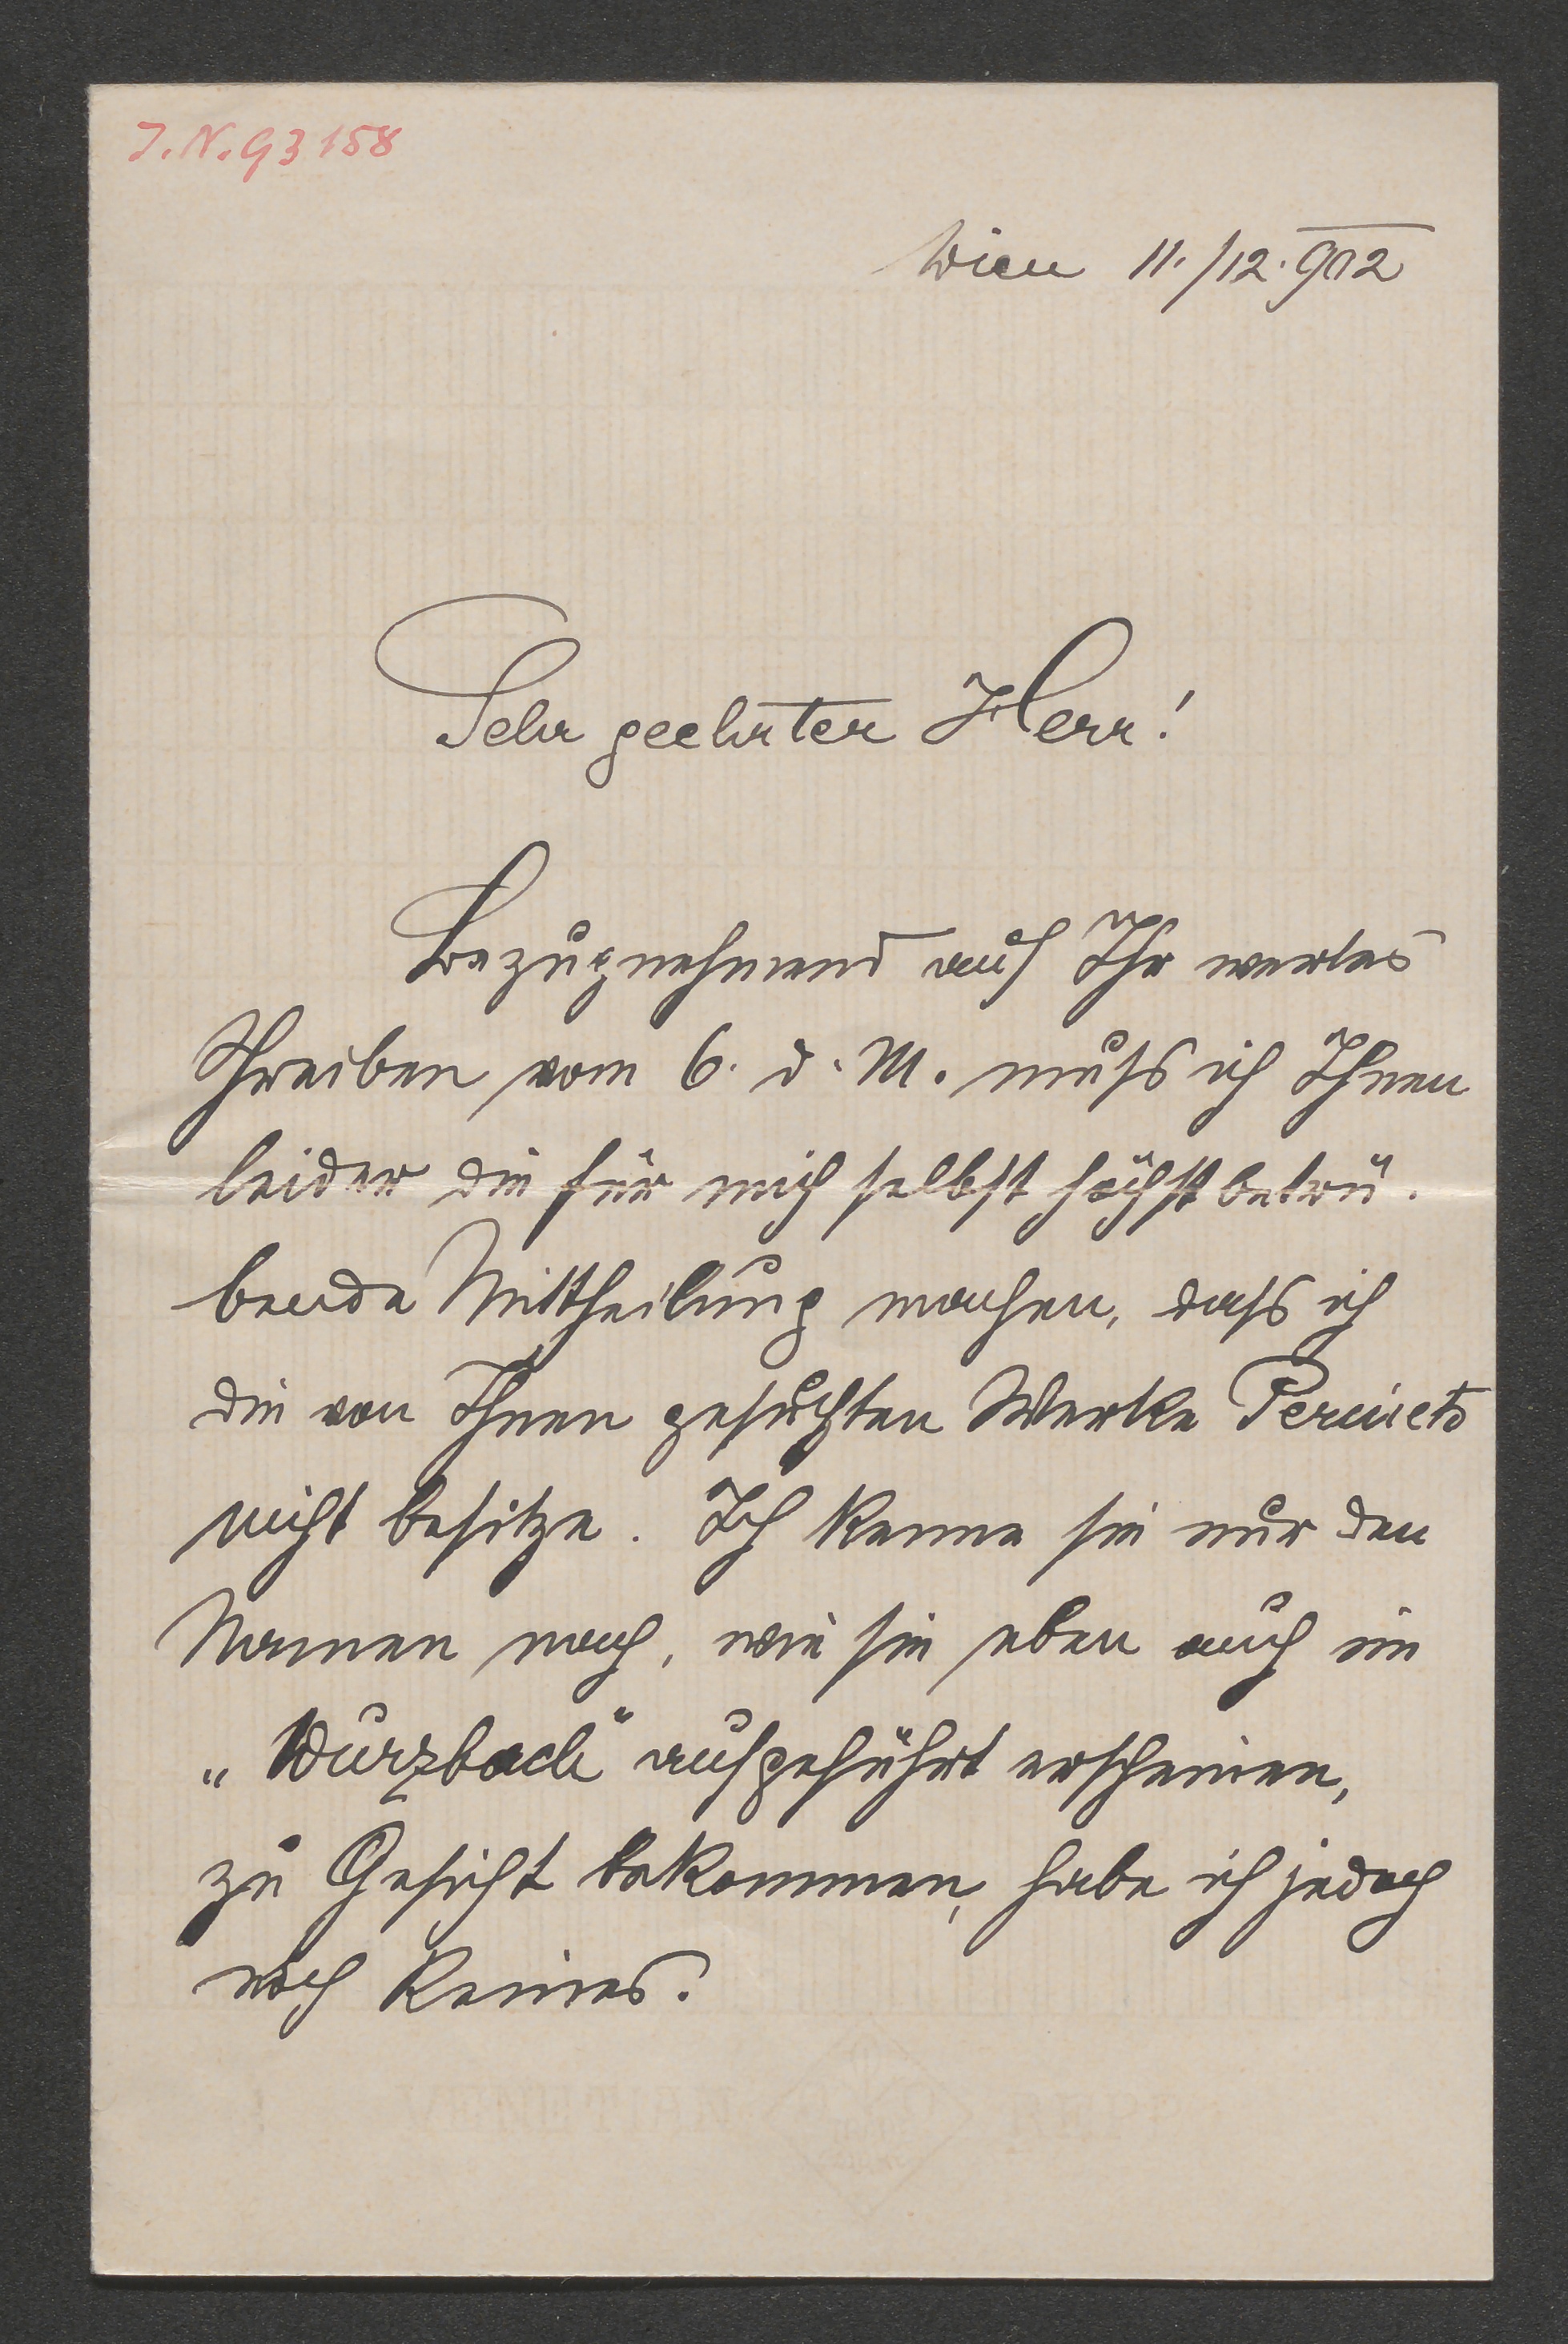 J.N. 93158
Wien 11./12. 902
Sehr geehrter Herr!
Bezugnehmend auf Ihr wertes
Schreiben vom 6. d. M. muß ich Ihnen
leider die für mich selbst höchst betrü-
bende Mittheilung machen, daß ich
die von Ihnen gesuchten Werke Perinets
nicht besitze. Ich kenne sie nur den
Namen nach, wie sie eben auch im
„Wurzbach“ aufgeführt erscheinen,
zu Gesicht bekommen, habe ich jedoch
noch keines.